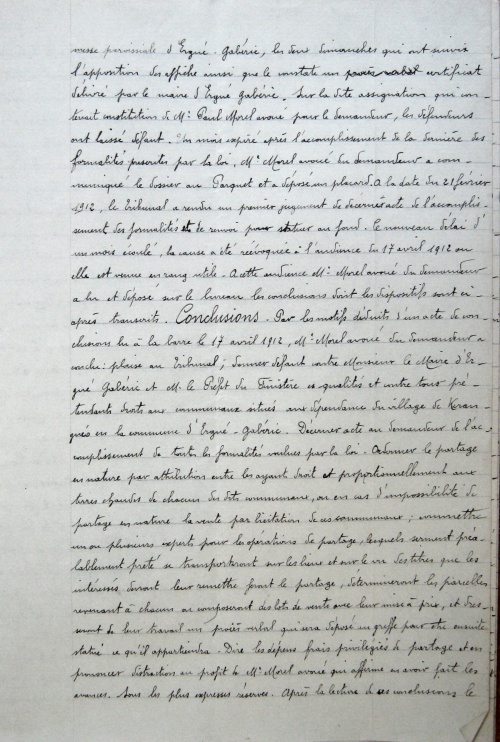 messe paroissiale d'Ergué-Gabéric, les deux dimanches qui ont suivis
l'apposition des affiche ainsi que le constate un procès verbal certificat
délivré par le maire d'Ergué Gabéric. Sur la dite assignation qui con-
tenait constitution de Me Paul Morel avoué pour le demandeur, les défendeurs
ont laissé défaut. Un mois expiré après l'accomplissement de la dernière des
formalités prescrites par la loi, Me Morel avoué du demandeur a com-
muniqué le dossier au Parquet et a déposé un placard. A la date du 21 février
1912, le Tribunal a rendu un premier jugement de décerné acte de l'accomplis-
sement des formalités et de renvoi pour statuer au fond. Le nouveau délai d'
un mois écoulé, la cause a été réévoquée à l'audience du 17 avril 1912 ou
elle est venue en rang utile. A cette audience Me Morel avoué du demandeur
a lu et déposé sur le bureau les conclusions dont les dispositifs sont ci-
après transcrits. Conclusions. Par les motifs déduits d'un acte de con-
clusions lu à la barre le 17 avril 1912, Me Morel avoué du demandeur a
conclu: plaise au Tribunal; donner défaut contre Monsieur le Maire d'Er-
gué Gabéric et M. le Préfet du Finistère ès qualités et contre tous pré-
tendants droit aux communaux situés aux dépendance du village de Kéran-
gués en la commune d'Ergué-Gabéric. Décerner acte au demandeur de l'ac-
complissement de toutes les formalités voulues par la loi. Ordonner le partage
en nature par attribution entre les ayants droit et proportionnellement aux
terres chaudes de chacun des dits communaux, ou en cas d'impossibilité de
partage en nature la vente par licitation de ces communaux; commettre
un ou plusieurs experts pour les opérations de partage, lesquels serment préa-
lablement prêté se transporteront sur les lieux et sur le vu des titres que les
intéressés devront leur remettre feront le partage, détermineront les parcelles
revenant à chacun ou composeront des lots de vente avec leur mise à prix, et dres-
seront de leur travail un procès verbal qui sera déposé au greffe pour être ensuite
statué ce qu'il appartiendra. Dire les dépens frais privilégiés de partage et en
prononcer distraction au profit de Me Morel avoué qui affirme en avoir fait les
avances. Sous les plus expresses réserves. Après la lecture de ces conclusions le